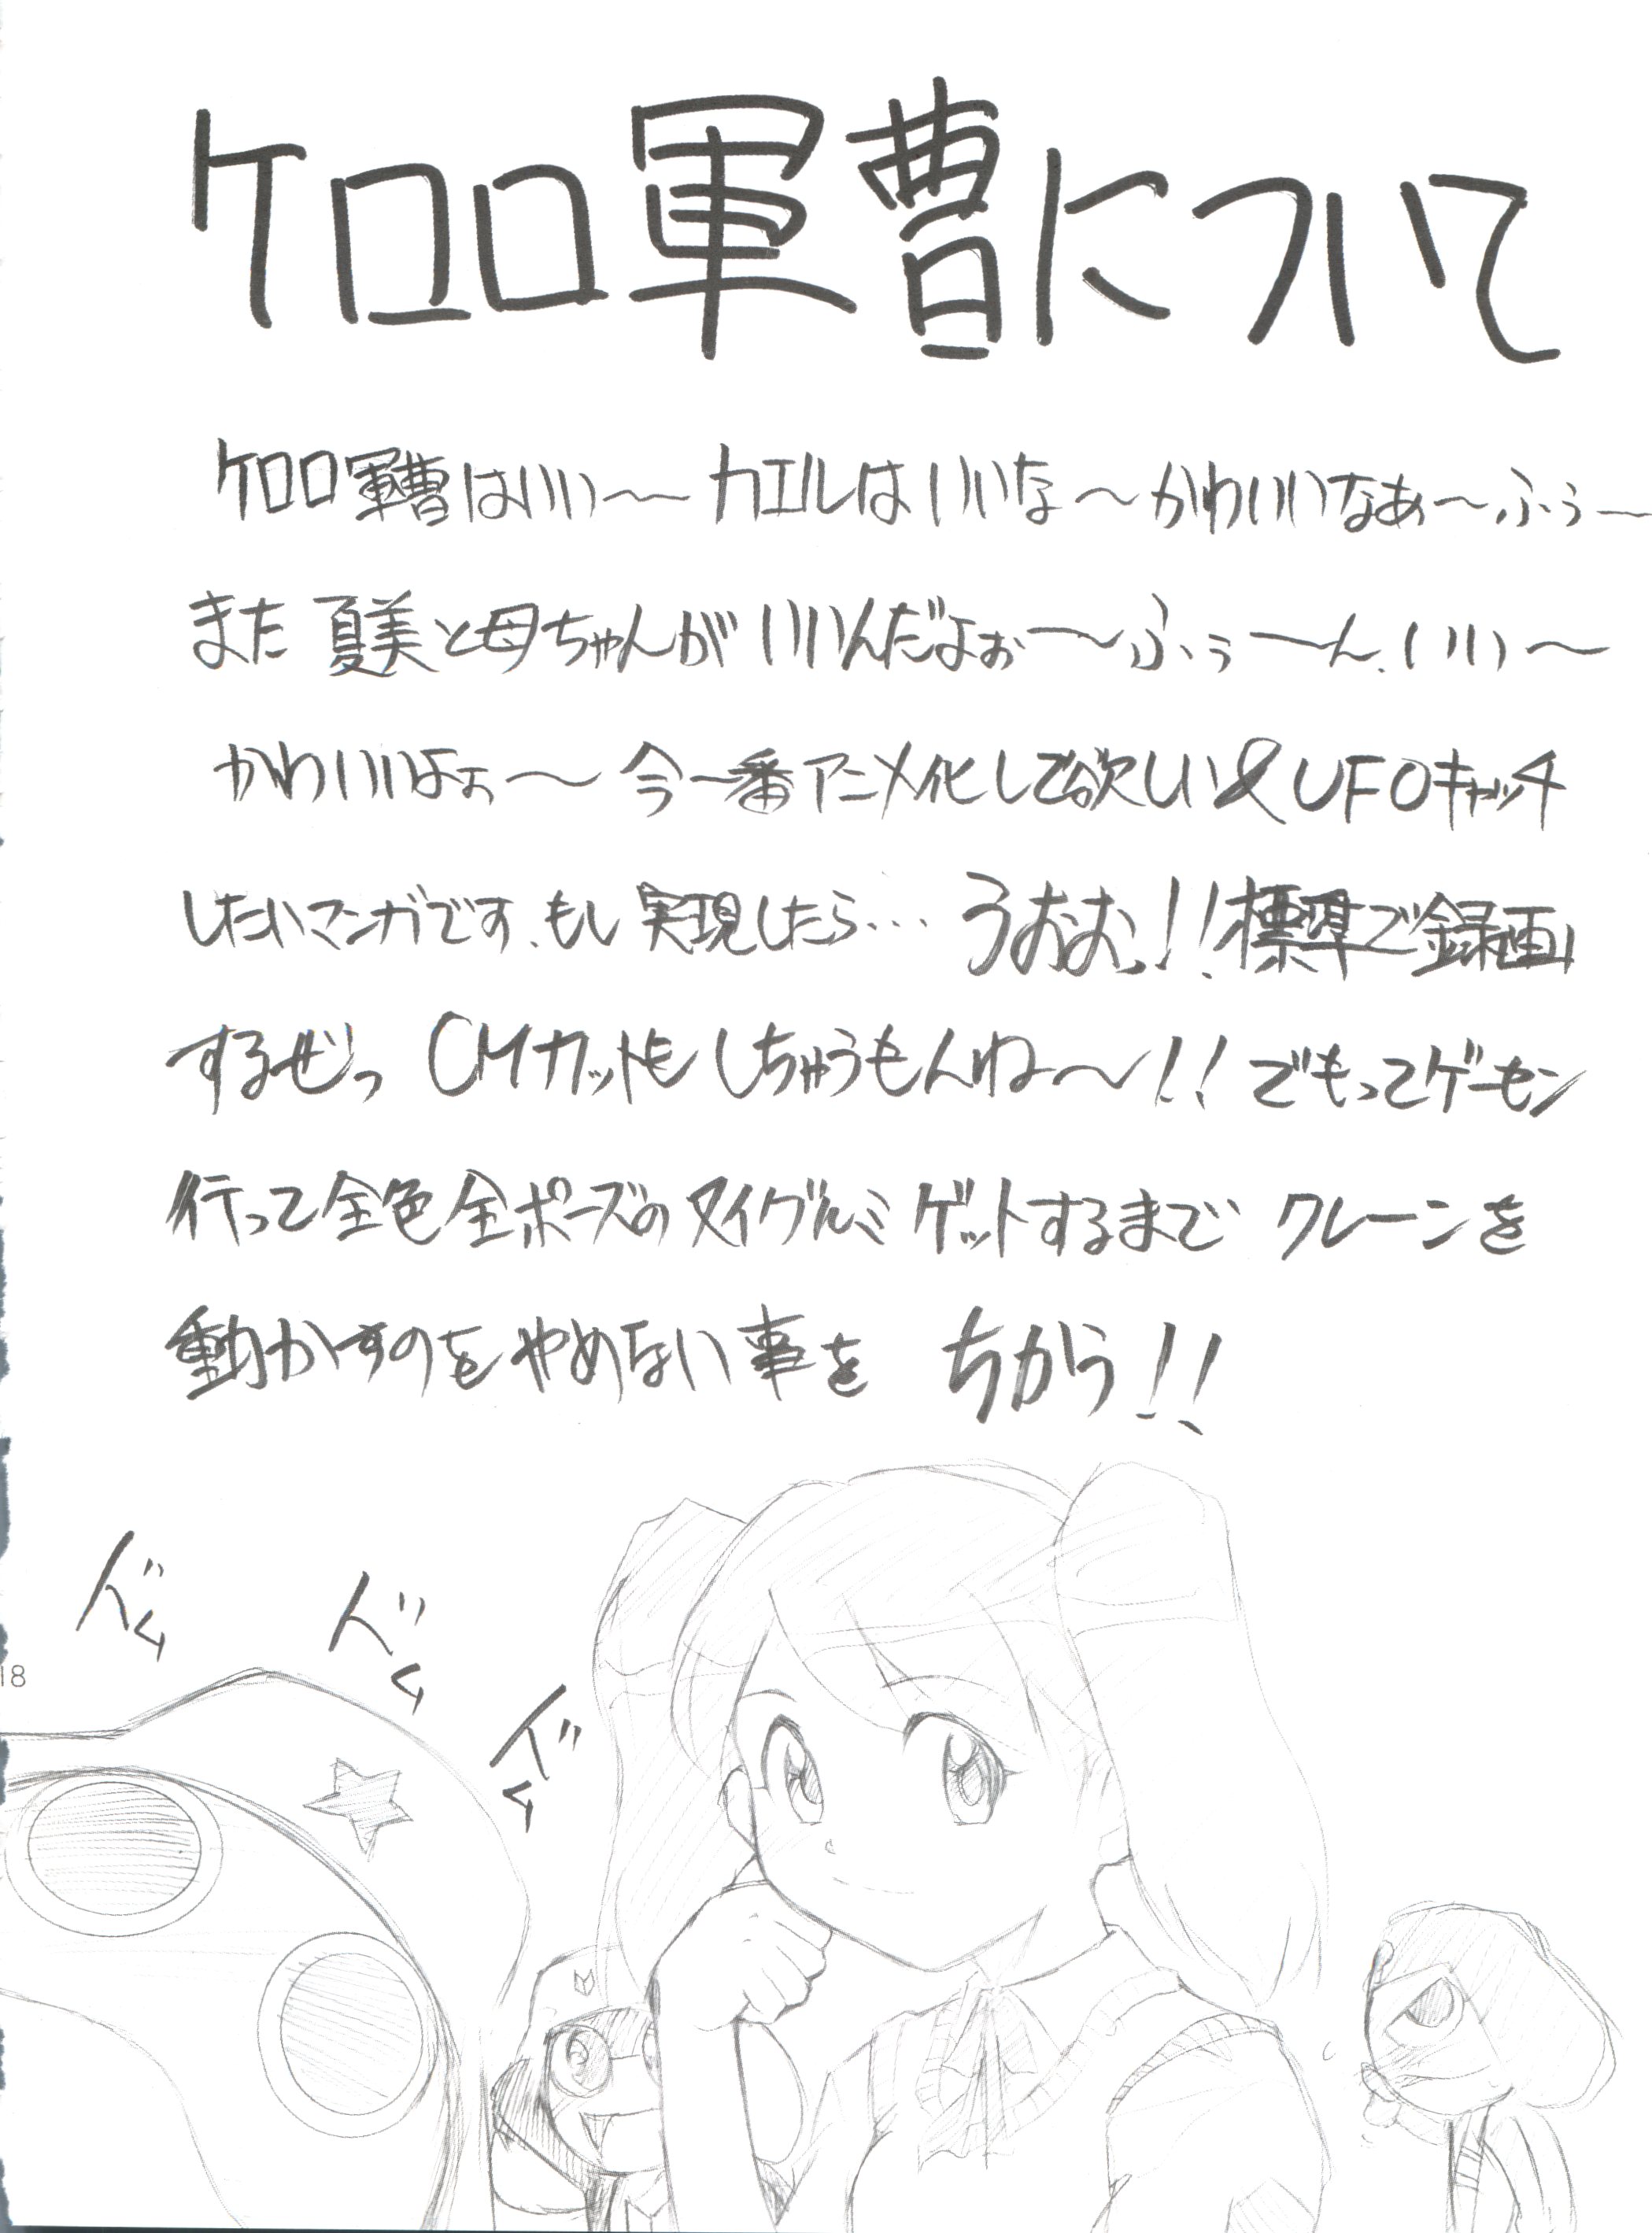 ケロロ軍曹について
ケロロ軍曹はいい〜〜カエルはいいな〜かわいいなぁ〜ふぅ〜
また夏美と母ちゃんがいいんだよぉ〜ふぅ〜ん、いい〜
かわいいよぉ〜今一番アニメ化して欲しい&UFOキャッチ
したいマンガです、もし実現したら…うおおっ!!標準で録画
するぜっ CMカットもしちゃうもんね〜!!でもってゲーセン
行って全色全ポーズのヌイグルミゲットするまでクレーンを
動かすのをやめない事をちかう!!
ドム
ドム
ドム
18